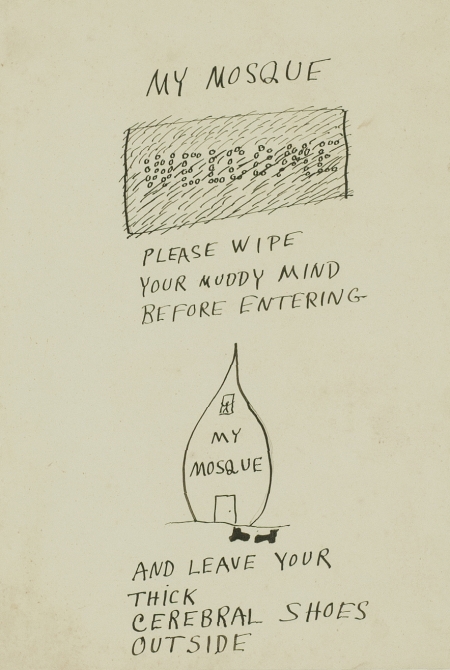 MY MOSQUE
PLEASE WIPE
YOUR MUDDY MIND
BEFORE ENTERING
MY
MOSQUE
AND LEAVE YOUR
THICK
CEREBRAL SHOES
OUTSIDE